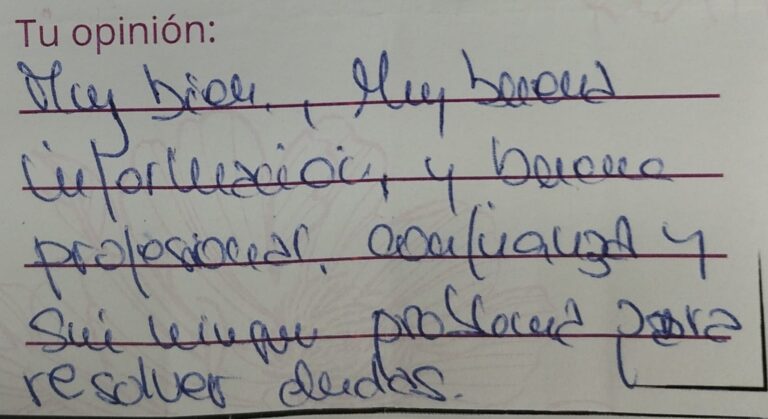 Tu opinión:
Muy bien, Muy buena
información, y buena
profesional. confianza y
sin ningun problema para
resolver dudas.